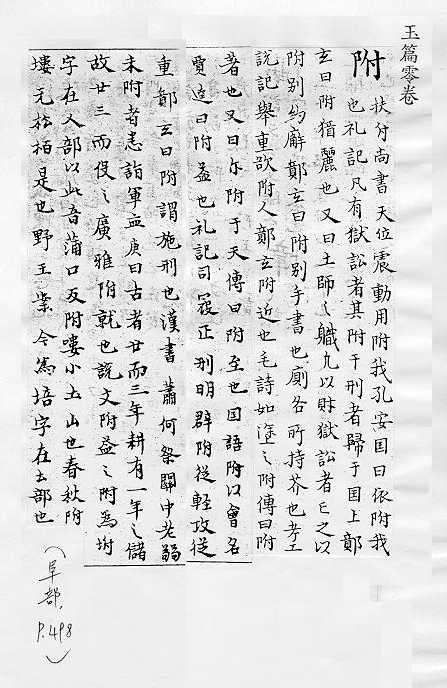 玉篇零卷
附 扶付尚書天位震動用附我孔安国曰依附我
也礼記凡有獄訟者其附于刑者歸于国上鄭
玄曰附猶麗也又曰土師之職凡以財獄訟者正之以
附别約廨鄭玄曰附别手書也廁各所持芥也考工
說記舉重欲附人鄭玄附近也毛詩如塗之附傳曰附
著也又曰尓附于天傳曰附至也国語附以會名
賈逵曰附益也礼記司寇正刑明辟附從輕攷從
重鄭玄曰附謂施刑也漢書蕭何祭關中老弱
未附者悉詣軍孟康曰古者廿而三年耕有一年之儲
故廿三而伇之廣雅附就也說文附益之附爲坿
字在人部以此吾蒲口反附嘍小土山也春秋附
塿无松柏是也野王案今爲培字在土部也
(阜部 P.498)